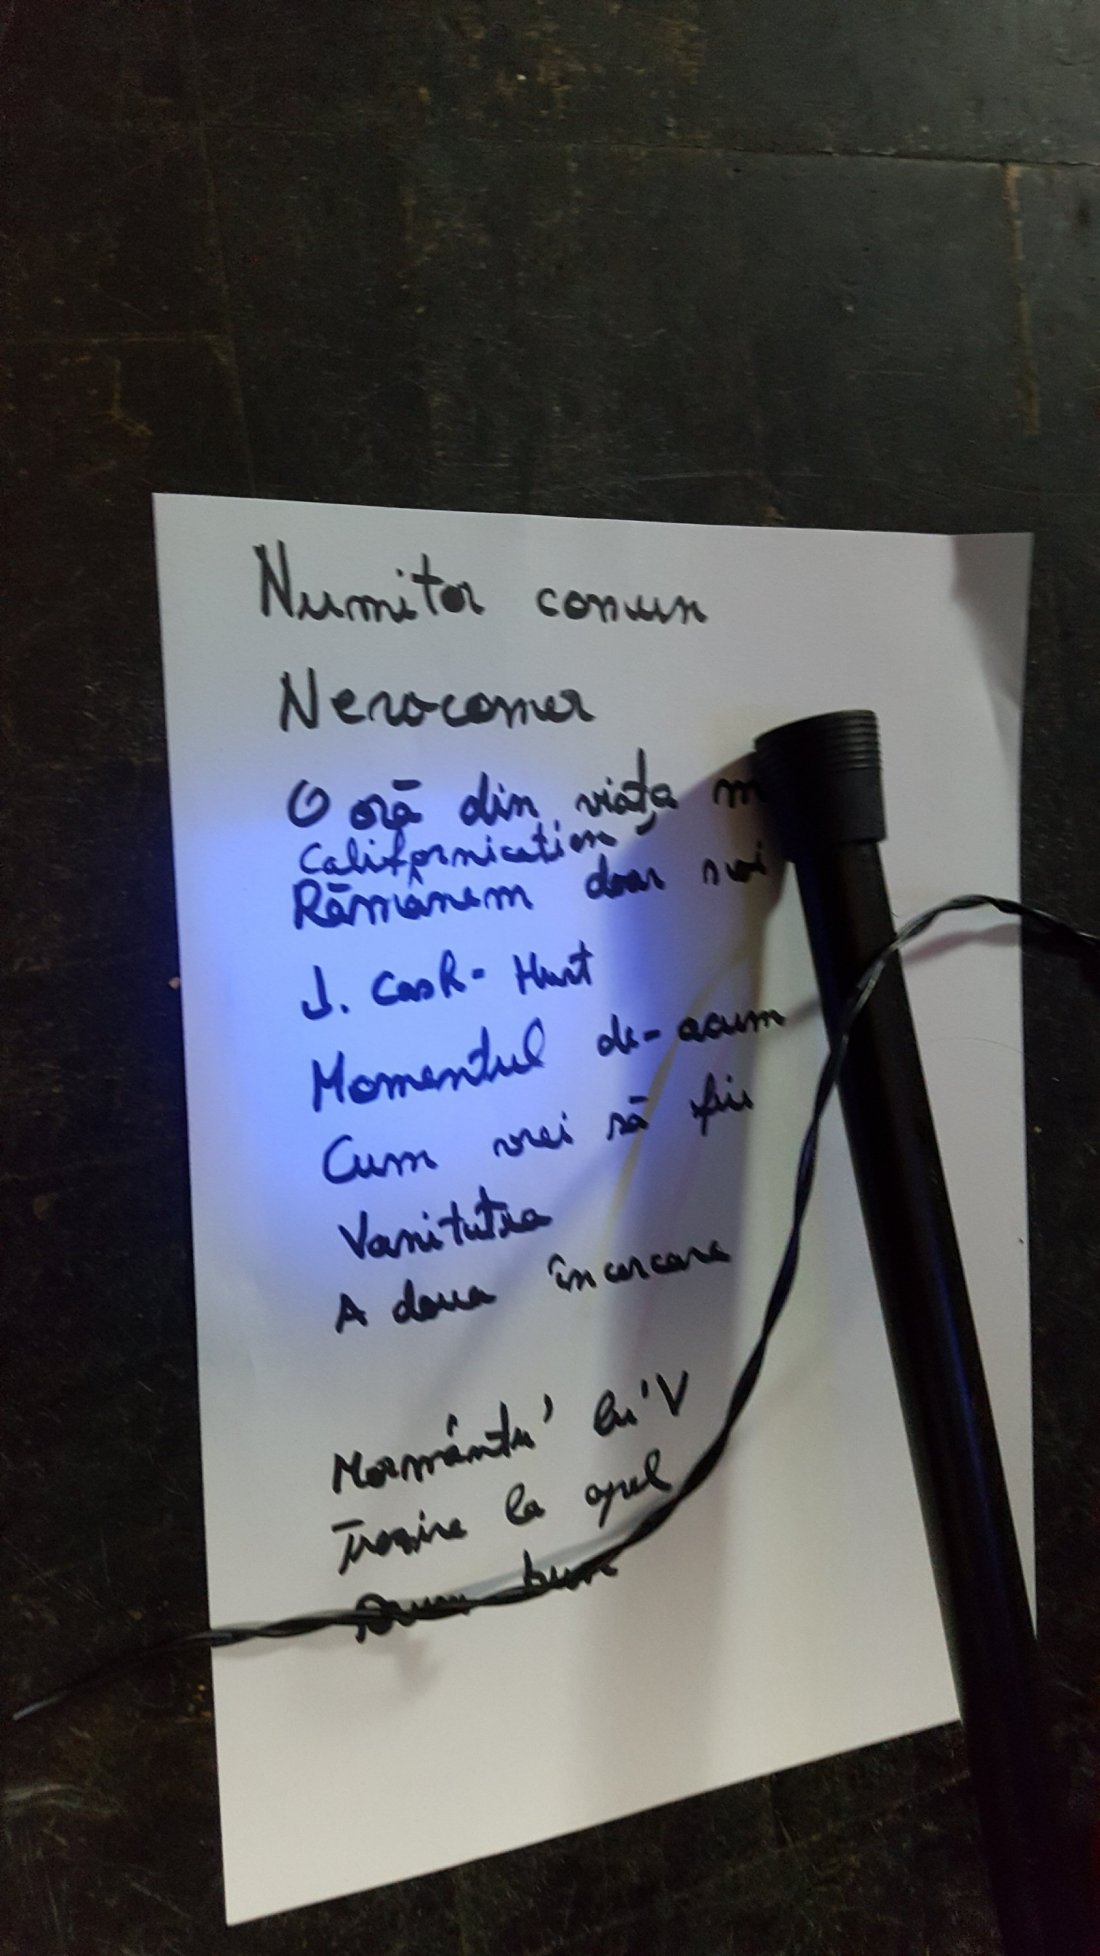 Numitor comun
Nerocomer
O oră din viața m
Californication
Rămânem doar noi
J. Cash - Hurt
Momentul de-acum
Cum vrei să fiu
Vanitatea
A doua încercare
Mormântu' lu' V
Trezire la apel
Drum bun